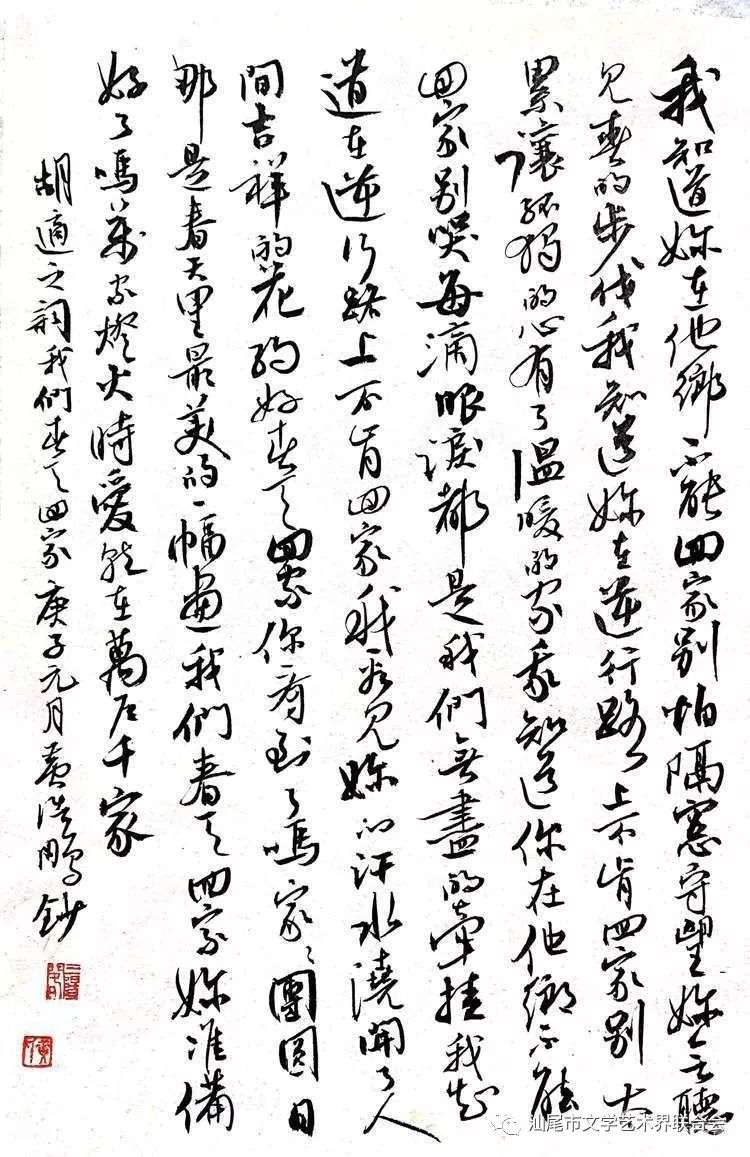 我知道妳在他鄉不能回家别怕隔窓守望妳会聽
見春的步伐我知道妳在逆行路上不肯回家别太
累讓孤獨的心有了温暖的家我知道你在他鄉不能
回家别哭每滴眼淚都是我們無盡的牽挂我知
道在逆行路上不肯回家我看見妳的汗水澆開了人
間吉祥的花約好春天回家你看到了嗎家家團圓日
那是春天里最美的一幅畫我們春天回家妳准備
好了嗎萬家燈火時愛能在萬户千家
胡適之詞我們春天回家庚子元月黄浩鵬鈔
汕尾市文学艺术界联合会